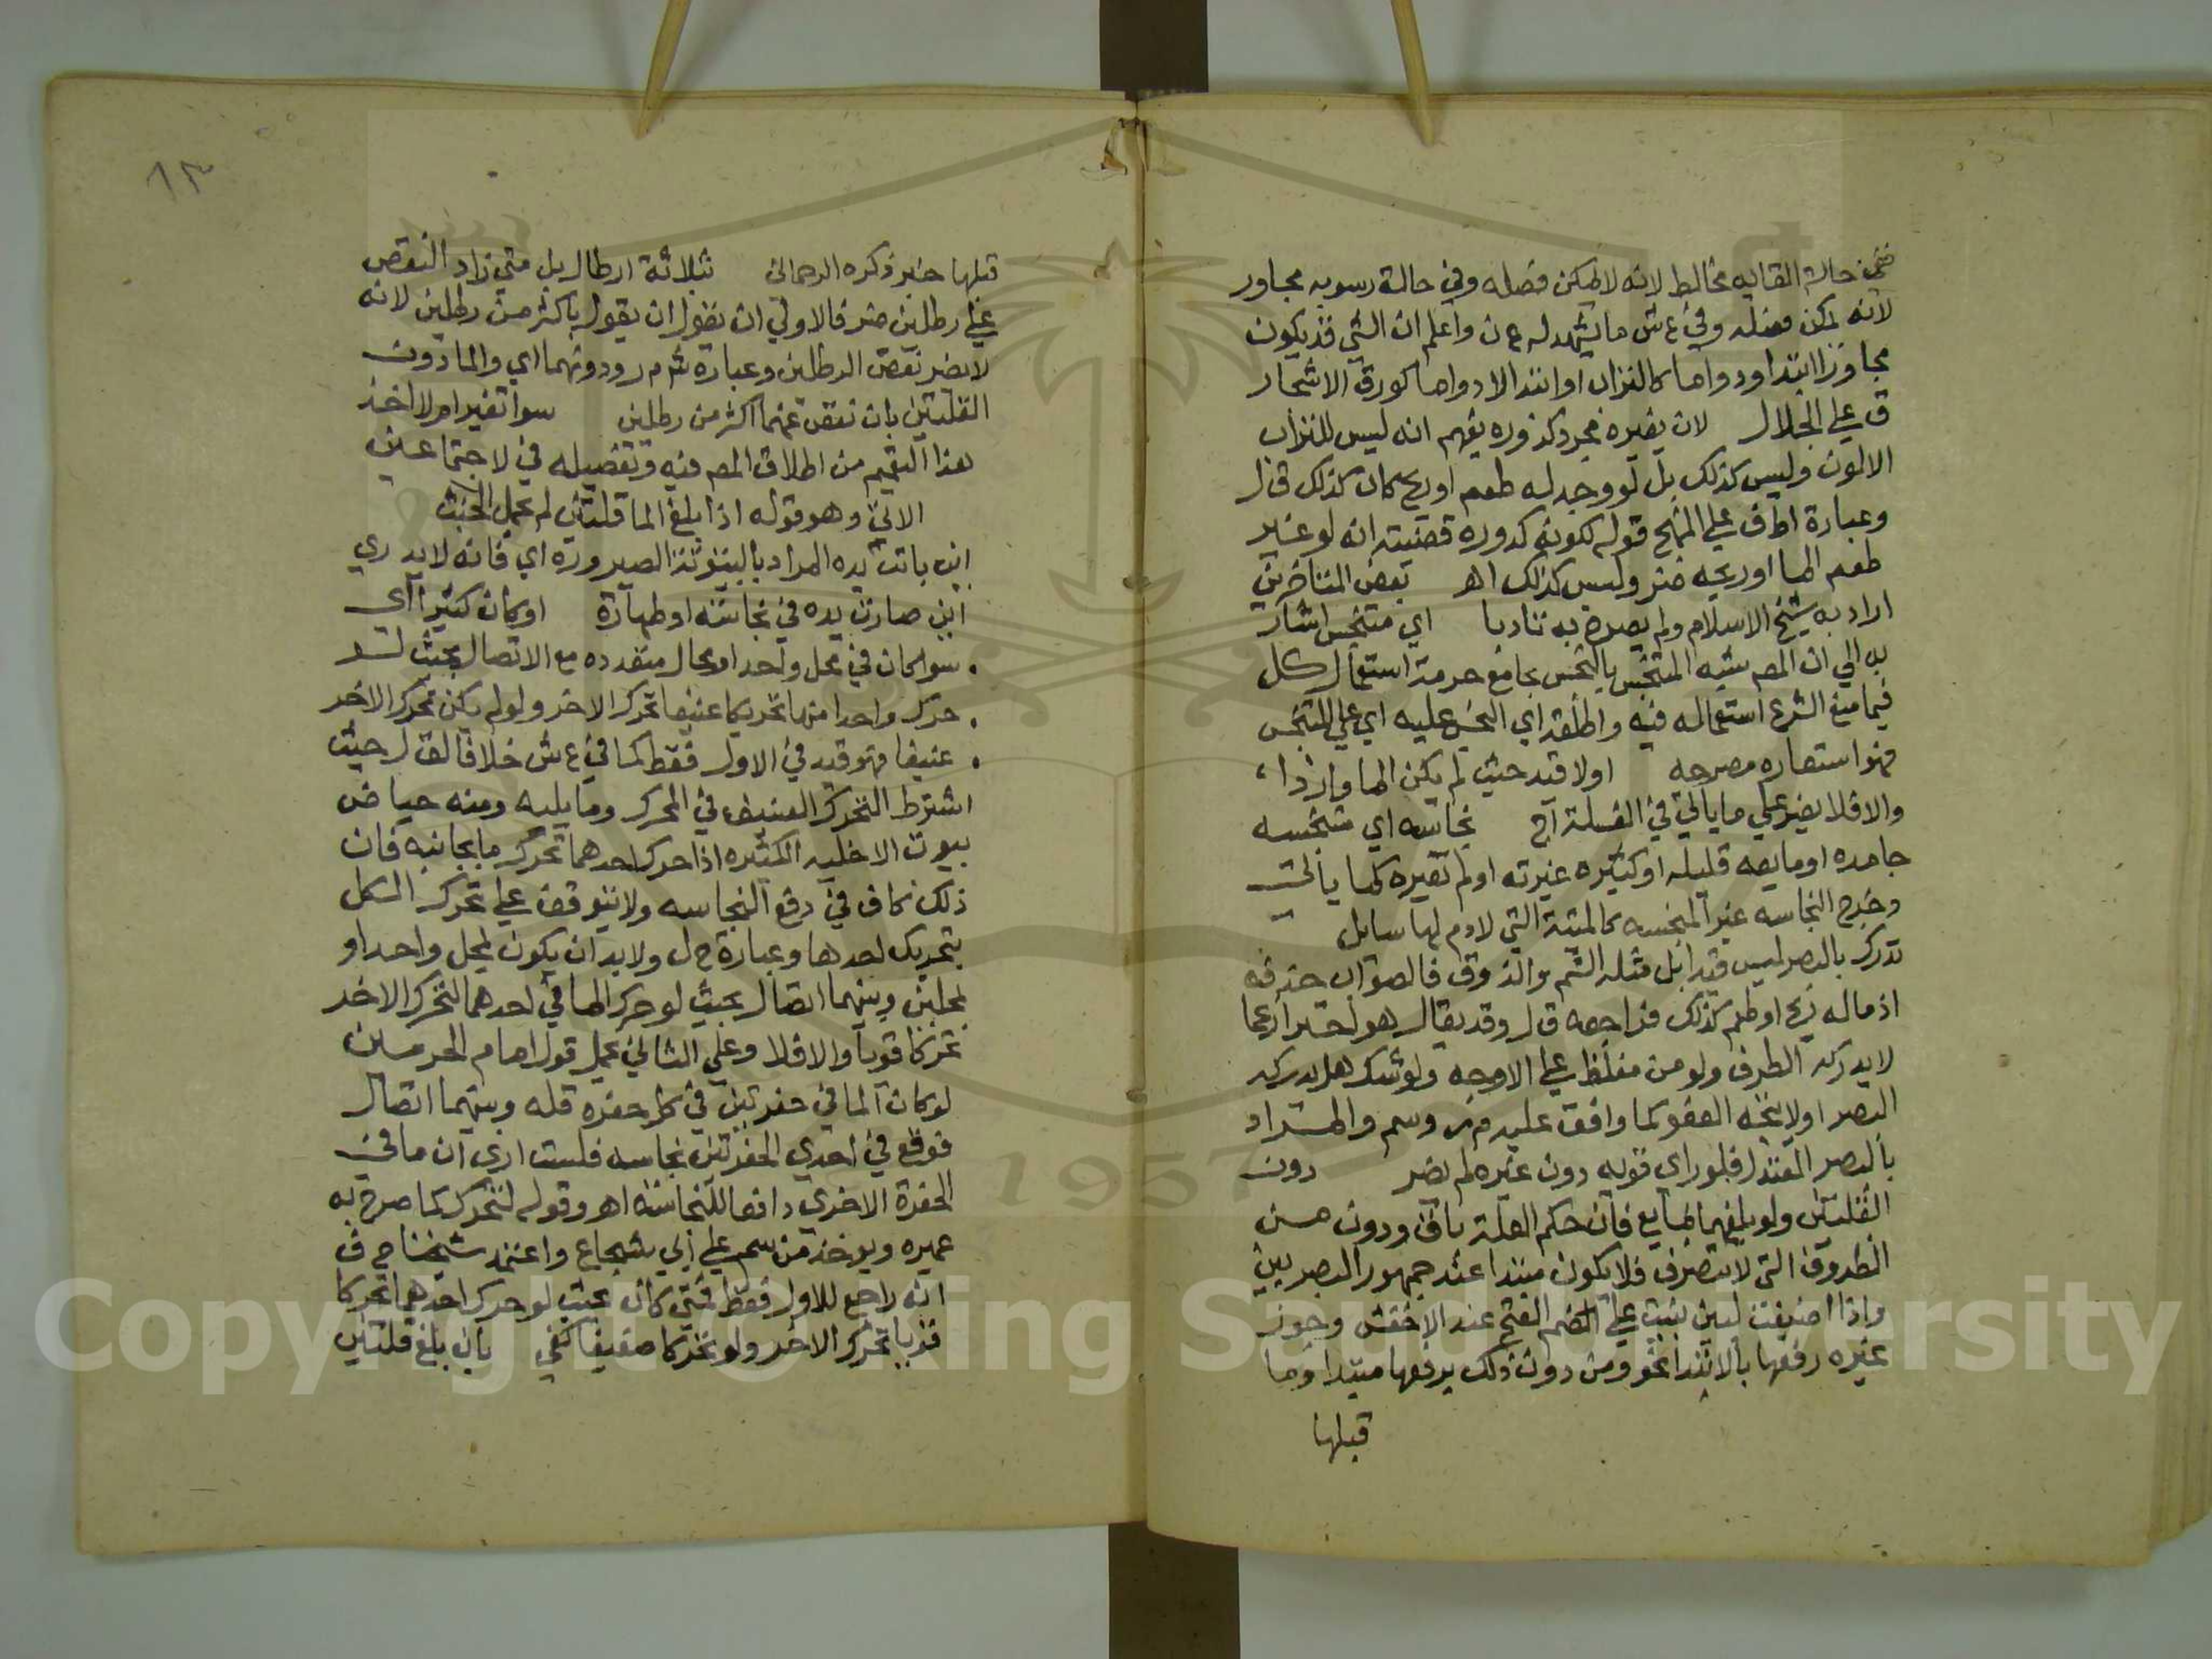 ففي حالة القايه مخالط لانه لا يمكن فصله وفي حالة رسوبه مجاور
لانه يمكن فصله وفي ع ش ما يشهد له ع ن واعلم ان الشي قد يكون
مجاورا ابتدا ودواما كالتراب او ابتدا لا دواما كورق الاشجار
ق علي الجلال لان تغيره مجرد كدوره يفهم انه ليس للتراب
الا لون وليس كذلك بل لو وجد له طعم او ريح كان كذلك ق ل
وعبارة اطف علي المنهج قوله لكونه كدوره قضيته انه لو غير
طعم الما او ريحه ضر وليس كذلك اهـ بعض المتاخرين
اراد به شيخ الاسلام ولم يصرح به تادبا اي متنجس اشار
به الي ان المص شبه المتنجس بالنجس بجامع حرمة استعمال كل
فيما منع الشرع استعماله فيه واطلقه اي النجس عليه اي علي المتنجس
فهو استعاره مصرحه اولا قيد حيث لم يكن الما واردا
والا فلا يضر علي ما ياتي في الغسلة اج نجاسه اي منجسه
جامده او مايعه قليله او كثيره غيرته او لم تغيره كما ياتي
وخرج النجاسه غير المنجسه كالميتة التي لا دم لها سايل
تدرك بالبصر ليس قيدا بل مثله الشم والذوق فالصواب حذفه
اذ ماله ريح او طعم كذلك فراجعه ق ل وقد يقال هو احترازعما
لا يدركه الطرف ولو من مغلظ علي الاوجه ولو شك هل يدركه
البصر اولا يتجه العفو كما وافق عليه م ر وسم والمراد
بالبصر المعتدل فلو راي قويه دون غيره لم يضر دون
القلتين ولو بلغهما بمايع فان حكم القلة باق ودون من
الظروف التي لا تتصرف فلا يكون مبتدا عند جمهور البصريين
واذا اضيفت لمبني بنيت علي الضم الفتح عند الاخفش وجوز
غيره رفعها بالابتدا نحو ومن دون ذلك برفعها مبتدا وما
قبلها
١٣
قبلها خبر ذكره الرحماني بثلاثة ارطال بل متي زاد النقص
علي رطلين ضر فالاولي ان يقول ان يقول باكثر من رطلين لانه
لا يضر نقص الرطلين وعبارة شم م ر ودونهما اي والما دون
القلتين بان نقص عنهما اكثر من رطلين سوا تغير ام لا اخذ
هذا التعميم من اطلاق المص فيه وتفصيله في لا جتماعين
الاتي وهو قوله اذا بلغ الما قلتين لم يحمل الخبث
اين باتت يده المراد بالبيتوتة الصيرورة اي فانه لا يدري
اين صارت يده في نجاسة او طهارة او كان كثيرا اي
سوا كان في محل واحد او محال متعدده مع الاتصال بحيث لو
حرك واحدا منها تحريكا عنيفا تحرك الاخر ولو لم يكن تحرك الاخر
عنيفا فهو قيد في الاول فقط كما في ع ش خلافا لق ل حيث
اشترط التحرك العنيف في المحرك وما يليه ومنه حياض
بيوت الاخليه الكثيره اذا حرك احدهما تحرك ما بجانبه فان
ذلك كاف في دفع النجاسه ولا يتوقف علي تحرك الكل
بتحريك احدها وعبارة ح ل ولا بد ان يكون بمحل واحد او
بمحلين وبينهما اتصال بحيث لو حرك الما في احدهما لتحرك الاخر
تحركا قويا والا فلا وعلي الثاني يحمل قول امام الحرمين
لو كان الما في حفرتين في كل حفره قله وبينهما اتصال
فوقع في احدي الحفرتين نجاسه فلست اري ان ما في
الحفرة الاخري دافعا للنجاسة اهـ وقوله لتحرك كما صرح به
عميره ويوخذ من سم علي ابي شجاع واعتمد شيخنا ح ف
انه راجع للاول فقط فمتي كان بحيث لو حرك احدهما تحركا
قويا تحرك الاخر ولو تحركا ضعيفا كفي بان بلغ قلتين